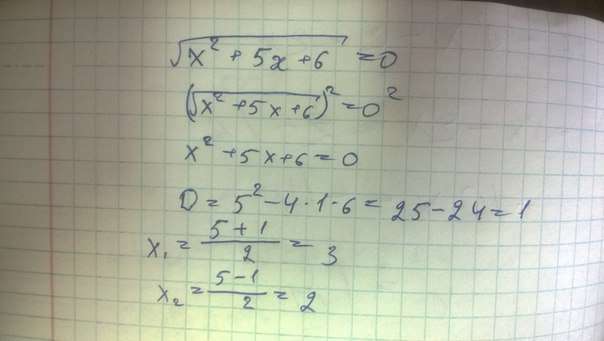 √(x² + 5x + 6) = 0
(√(x² + 5x + 6))² = 0²
x² + 5x + 6 = 0
D = 5² - 4 · 1 · 6 = 25 - 24 = 1
x₁ = (5 + 1)/2 = 3
x₂ = (5 - 1)/2 = 2